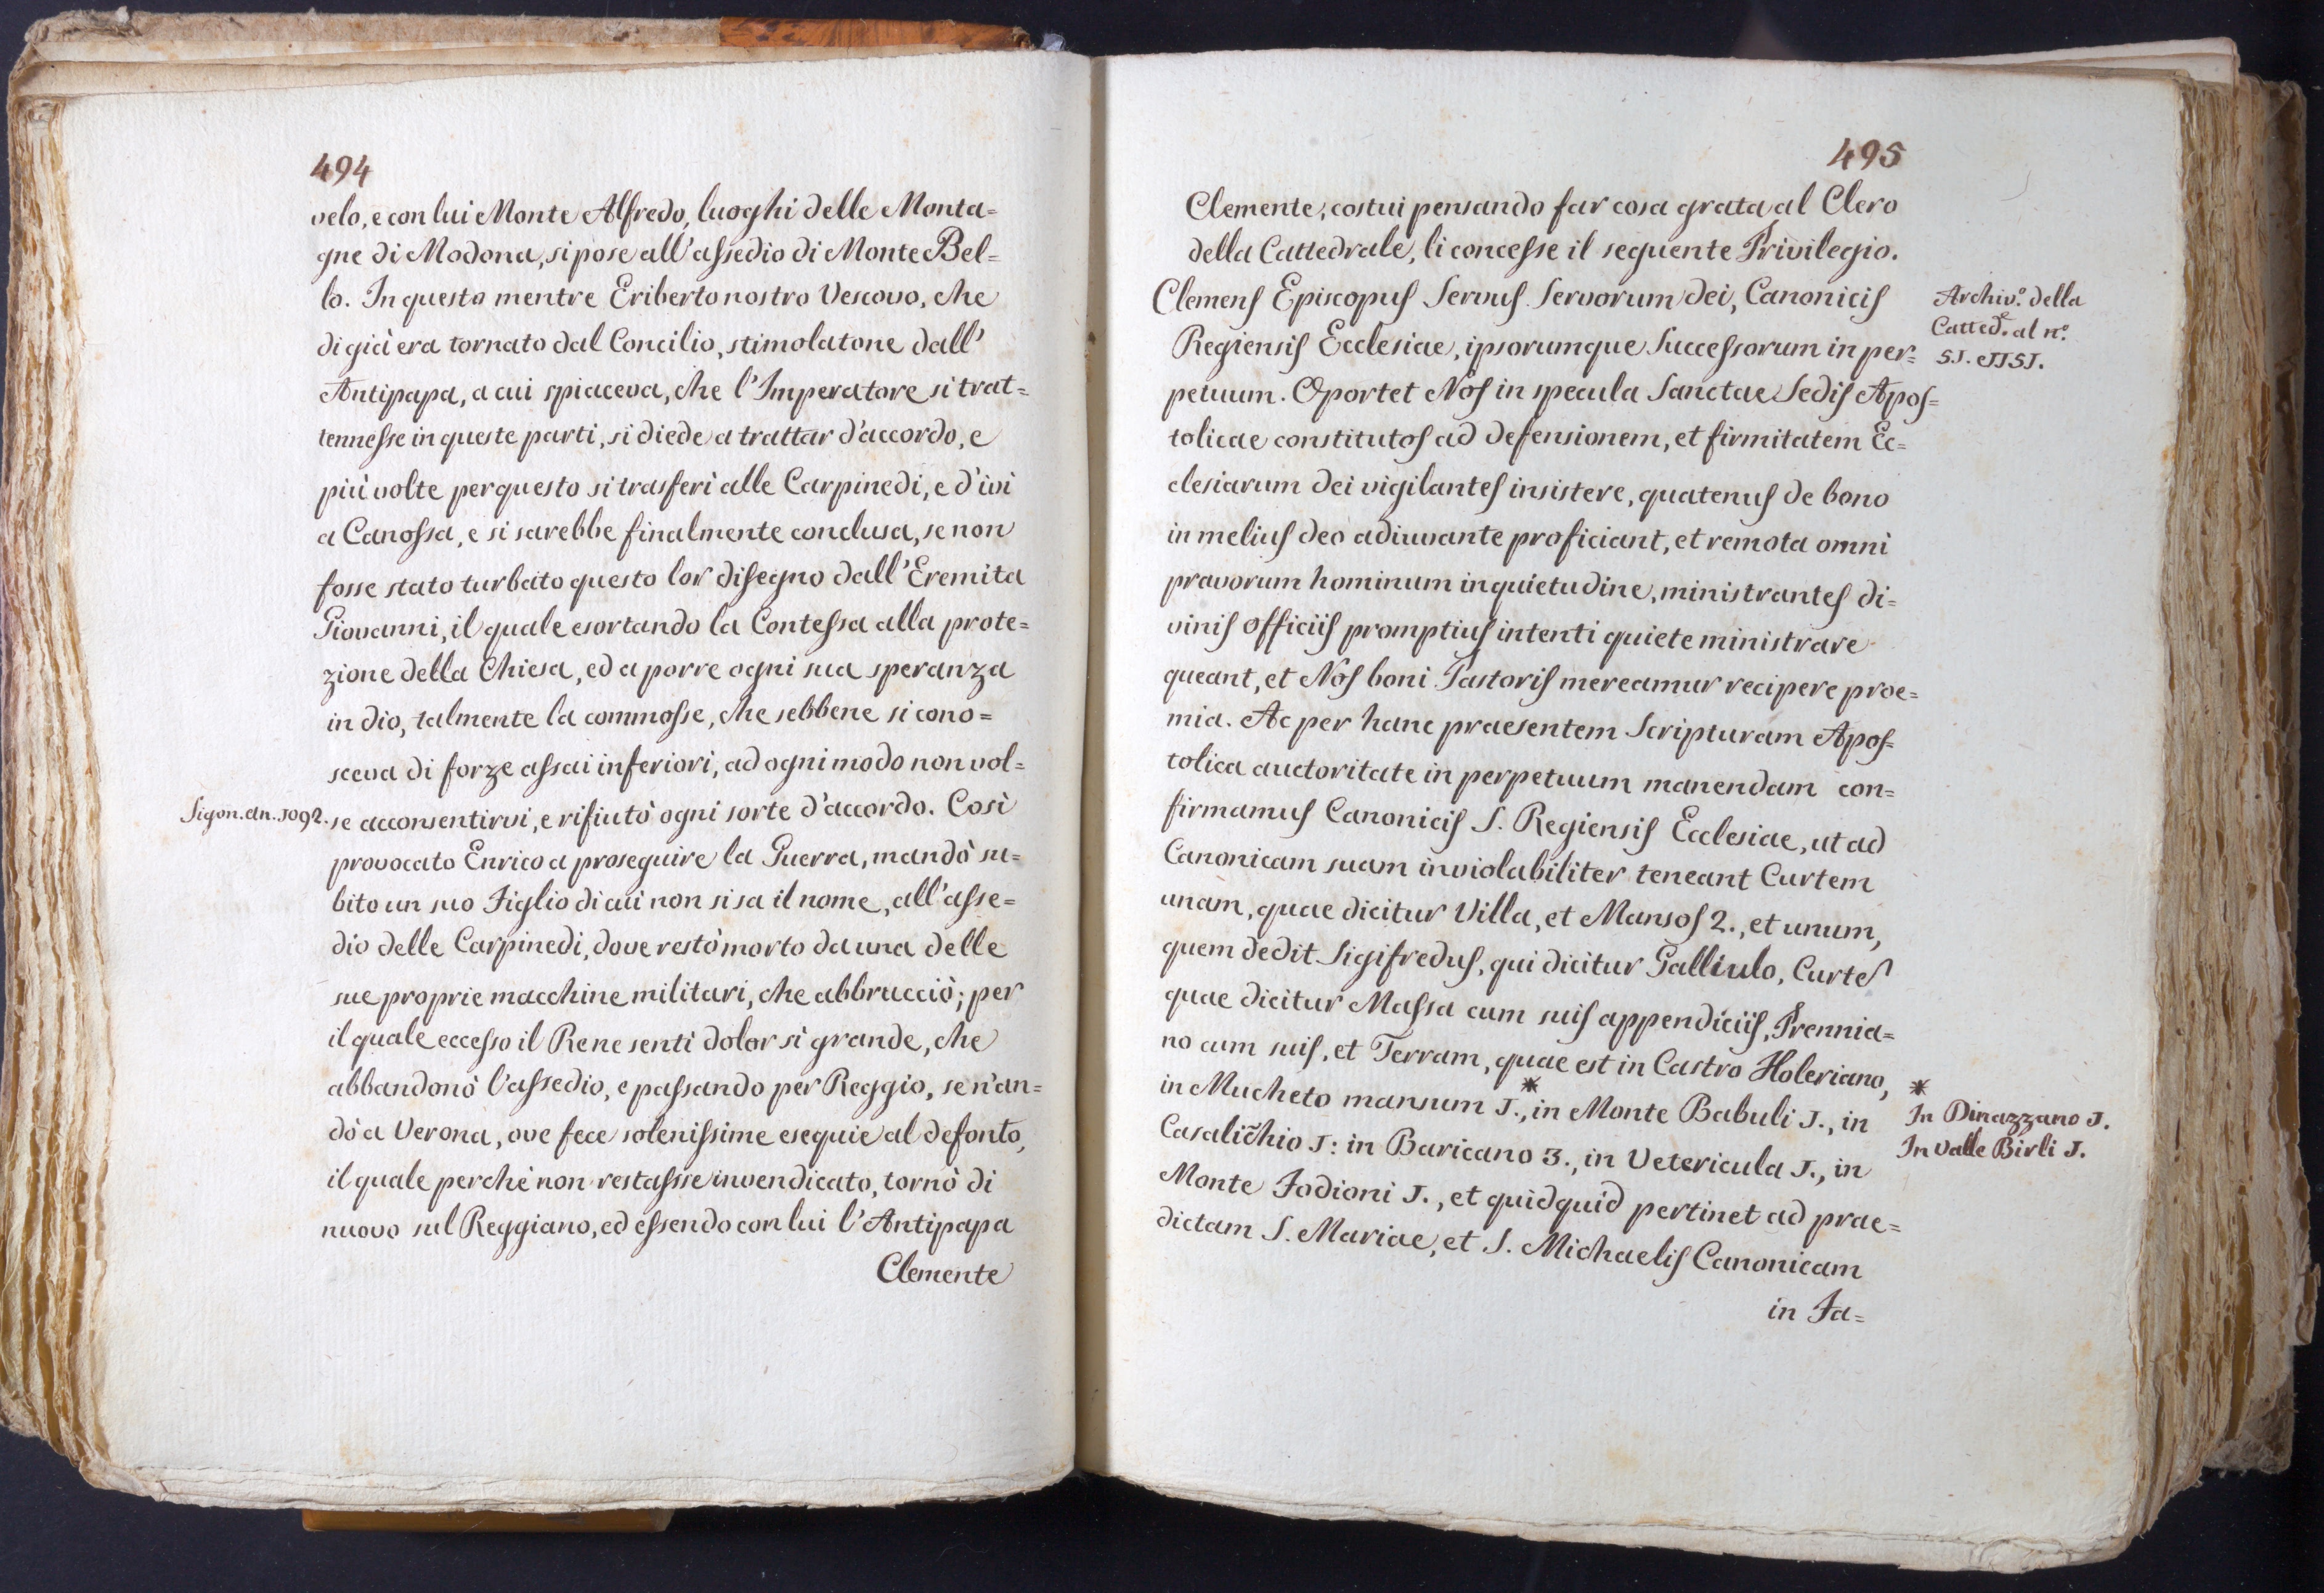 494
velo, e con lui Monte Alfredo, luoghi delle Monta=
gne di Modona, si pose all'assedio di Monte Bel=
lo. In questa mentre Eriberto nostro Vescovo, che
di già era tornato dal Concilio, stimolatone dall'
Antipapa, a cui spiaceva, che l'Imperatore si trat=
tennesse in queste parti, si diede a trattar d'accordo, e
più volte per questo si trasferì alle Carpinedi, e d'ivi
a Canossa, e si sarebbe finalmente conclusa, se non
fosse stato turbato questo lor disegno dall'Eremita
Giovanni, il quale esortando la Contessa alla prote=
zione della Chiesa, ed a porre ogni sua speranza
in dio, talmente la commosse, che sebbene si cono=
sceva di forze assai inferiori, ad ogni modo non vol=
Sigon. an. 1092.
se acconsentirvi, e rifiutò ogni sorte d'accordo. Così
provocato Enrico a proseguire la Guerra, mandò su=
bito un suo Figlio di cui non si sa il nome, all'asse=
dio delle Carpinedi, dove restò morto da una delle
sue proprie macchine militari, che abbrucciò; per
il quale eccesso il Re ne sentì dolor sì grande, che
abbandonò l'assedio, e passando per Reggio, se n'an=
dò a Verona, ove fece solenissime esequie al defonto,
il quale perchè non restasse invendicato, tornò di
nuovo sul Reggiano, ed essendo con lui l'Antipapa
Clemente
495
Clemente, costui pensando far cosa grata al Clero
della Cattedrale, li concesse il seguente Privilegio.
Clemens Episcopus Servus Servorum dei, Canonicis
Regiensis Ecclesiae, ipsorumque Successorum in per=
petuum. Oportet Nos in specula Sanctae Sedis Apos=
tolicae constitutos ad defensionem, et firmitatem Ec=
clesiarum dei vigilantes insistere, quatenus de bono
in melius deo adiuvante proficiant, et remota omni
pravorum hominum inquietudine, ministrantes di=
vinis officiis promptius intenti quiete ministrare
queant, et Nos boni Pastoris mereamur recipere proe=
mia. Ac per hanc praesentem Scripturam Apos=
tolica auctoritate in perpetuum manendam con=
firmamus Canonicis S. Regiensis Ecclesiae, ut ad
Canonicam suam inviolabiliter teneant Curtem
unam, quae dicitur Villa, et Mansos 2., et unum,
quem dedit Sigifredus, qui dicitur Galliulo, Curtes
quae dicitur Massa cum suis appendiciis, Prennia=
no cum suis, et Terram, quae est in Castro Holeriano,
in Mucheto mansum 1.,* in Monte Babuli 1., in
Casalic̃hio 1: in Baricano 3., in Vetericula 1., in
Monte Fodioni 1., et quidquid pertinet ad prae=
dictam S. Mariae, et S. Michaelis Canonicam
in Fa=
Archiv.º della
Catted.e al n.º
51. e 1151.
*
In Dinazzano 1.
In Valle Birli 1.